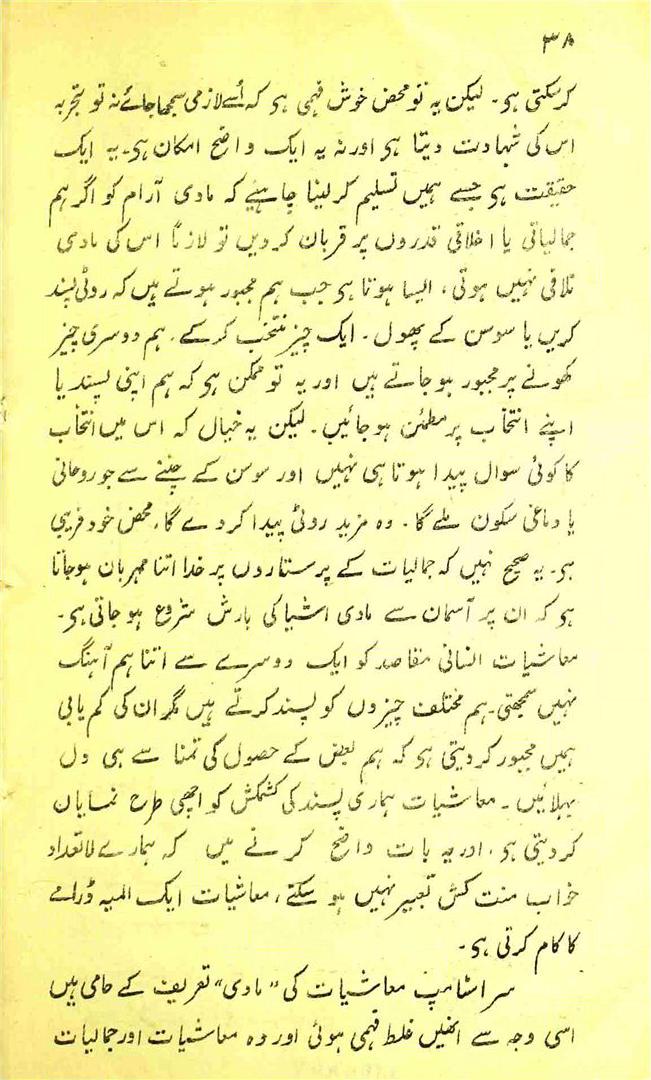 ۳۸
کرسکتی ہی۔ لیکن یہ تو محض خوش فہمی ہی کہ اُسے لازمی سمجھا جائے نہ تو تجربہ
اس کی شہادت دیتا ہی اور نہ یہ ایک واضح امکان ہی۔ یہ ایک
حقیقت ہی جسے ہمیں تسلیم کرلینا چاہیئے کہ مادی آرام کو اگر ہم
جمالیاتی یا اخلاقی قدروں پر قربان کردیں تو لازماً اس کی مادی
تلافی نہیں ہوتی، ایسا ہوتا ہی جب ہم مجبور ہوتے ہیں کہ روٹی پسند
کریں یا سوسن کے پھول۔ ایک چیز منتخب کرکے، ہم دوسری چیز
کھونے پر مجبور ہوجاتے ہیں اور یہ تو ممکن ہی کہ ہم اپنی پسند یا
اپنے انتخاب پر مطمئن ہوجائیں۔ لیکن یہ خیال کہ اس میں انتخاب
کا کوئی سوال پیدا ہوتا ہی نہیں اور سوسن کے چننے سے جو روحانی
یا دماغی سکون ملے گا۔ وہ مزید روٹی پیدا کردے گا، محض خود فریبی
ہی۔ یہ صحیح نہیں کہ جمالیات کے پرستاروں پر خدا اتنا مہربان ہوجاتا
ہی کہ ان پر آسمان سے مادی اشیا کی بارش شروع ہوجاتی ہی۔
معاشیات انسانی مقاصد کو ایک دوسرے سے اتنا ہم آہنگ
نہیں سمجھتی۔ ہم مختلف چیزوں کو پسند کرتے ہیں مگر ان کی کم یابی
ہمیں مجبور کردیتی ہی کہ ہم بعض کے حصول کی تمنا سے ہی دل
بہلائیں۔ معاشیات ہماری پسند کی کشمکش کو اچھی طرح نمایاں
کردیتی ہی، اور یہ بات واضح کرنے میں کہ ہمارے لاتعداد
خواب منت کش تعبیر نہیں ہو سکتے، معاشیات ایک المیہ ڈرامے
کا کام کرتی ہی۔
سراسٹامپ معاشیات کی "مادی" تعریف کے حامی ہیں
اسی وجہ سے انھیں غلط فہمی ہوئی اور وہ معاشیات اور جمالیات